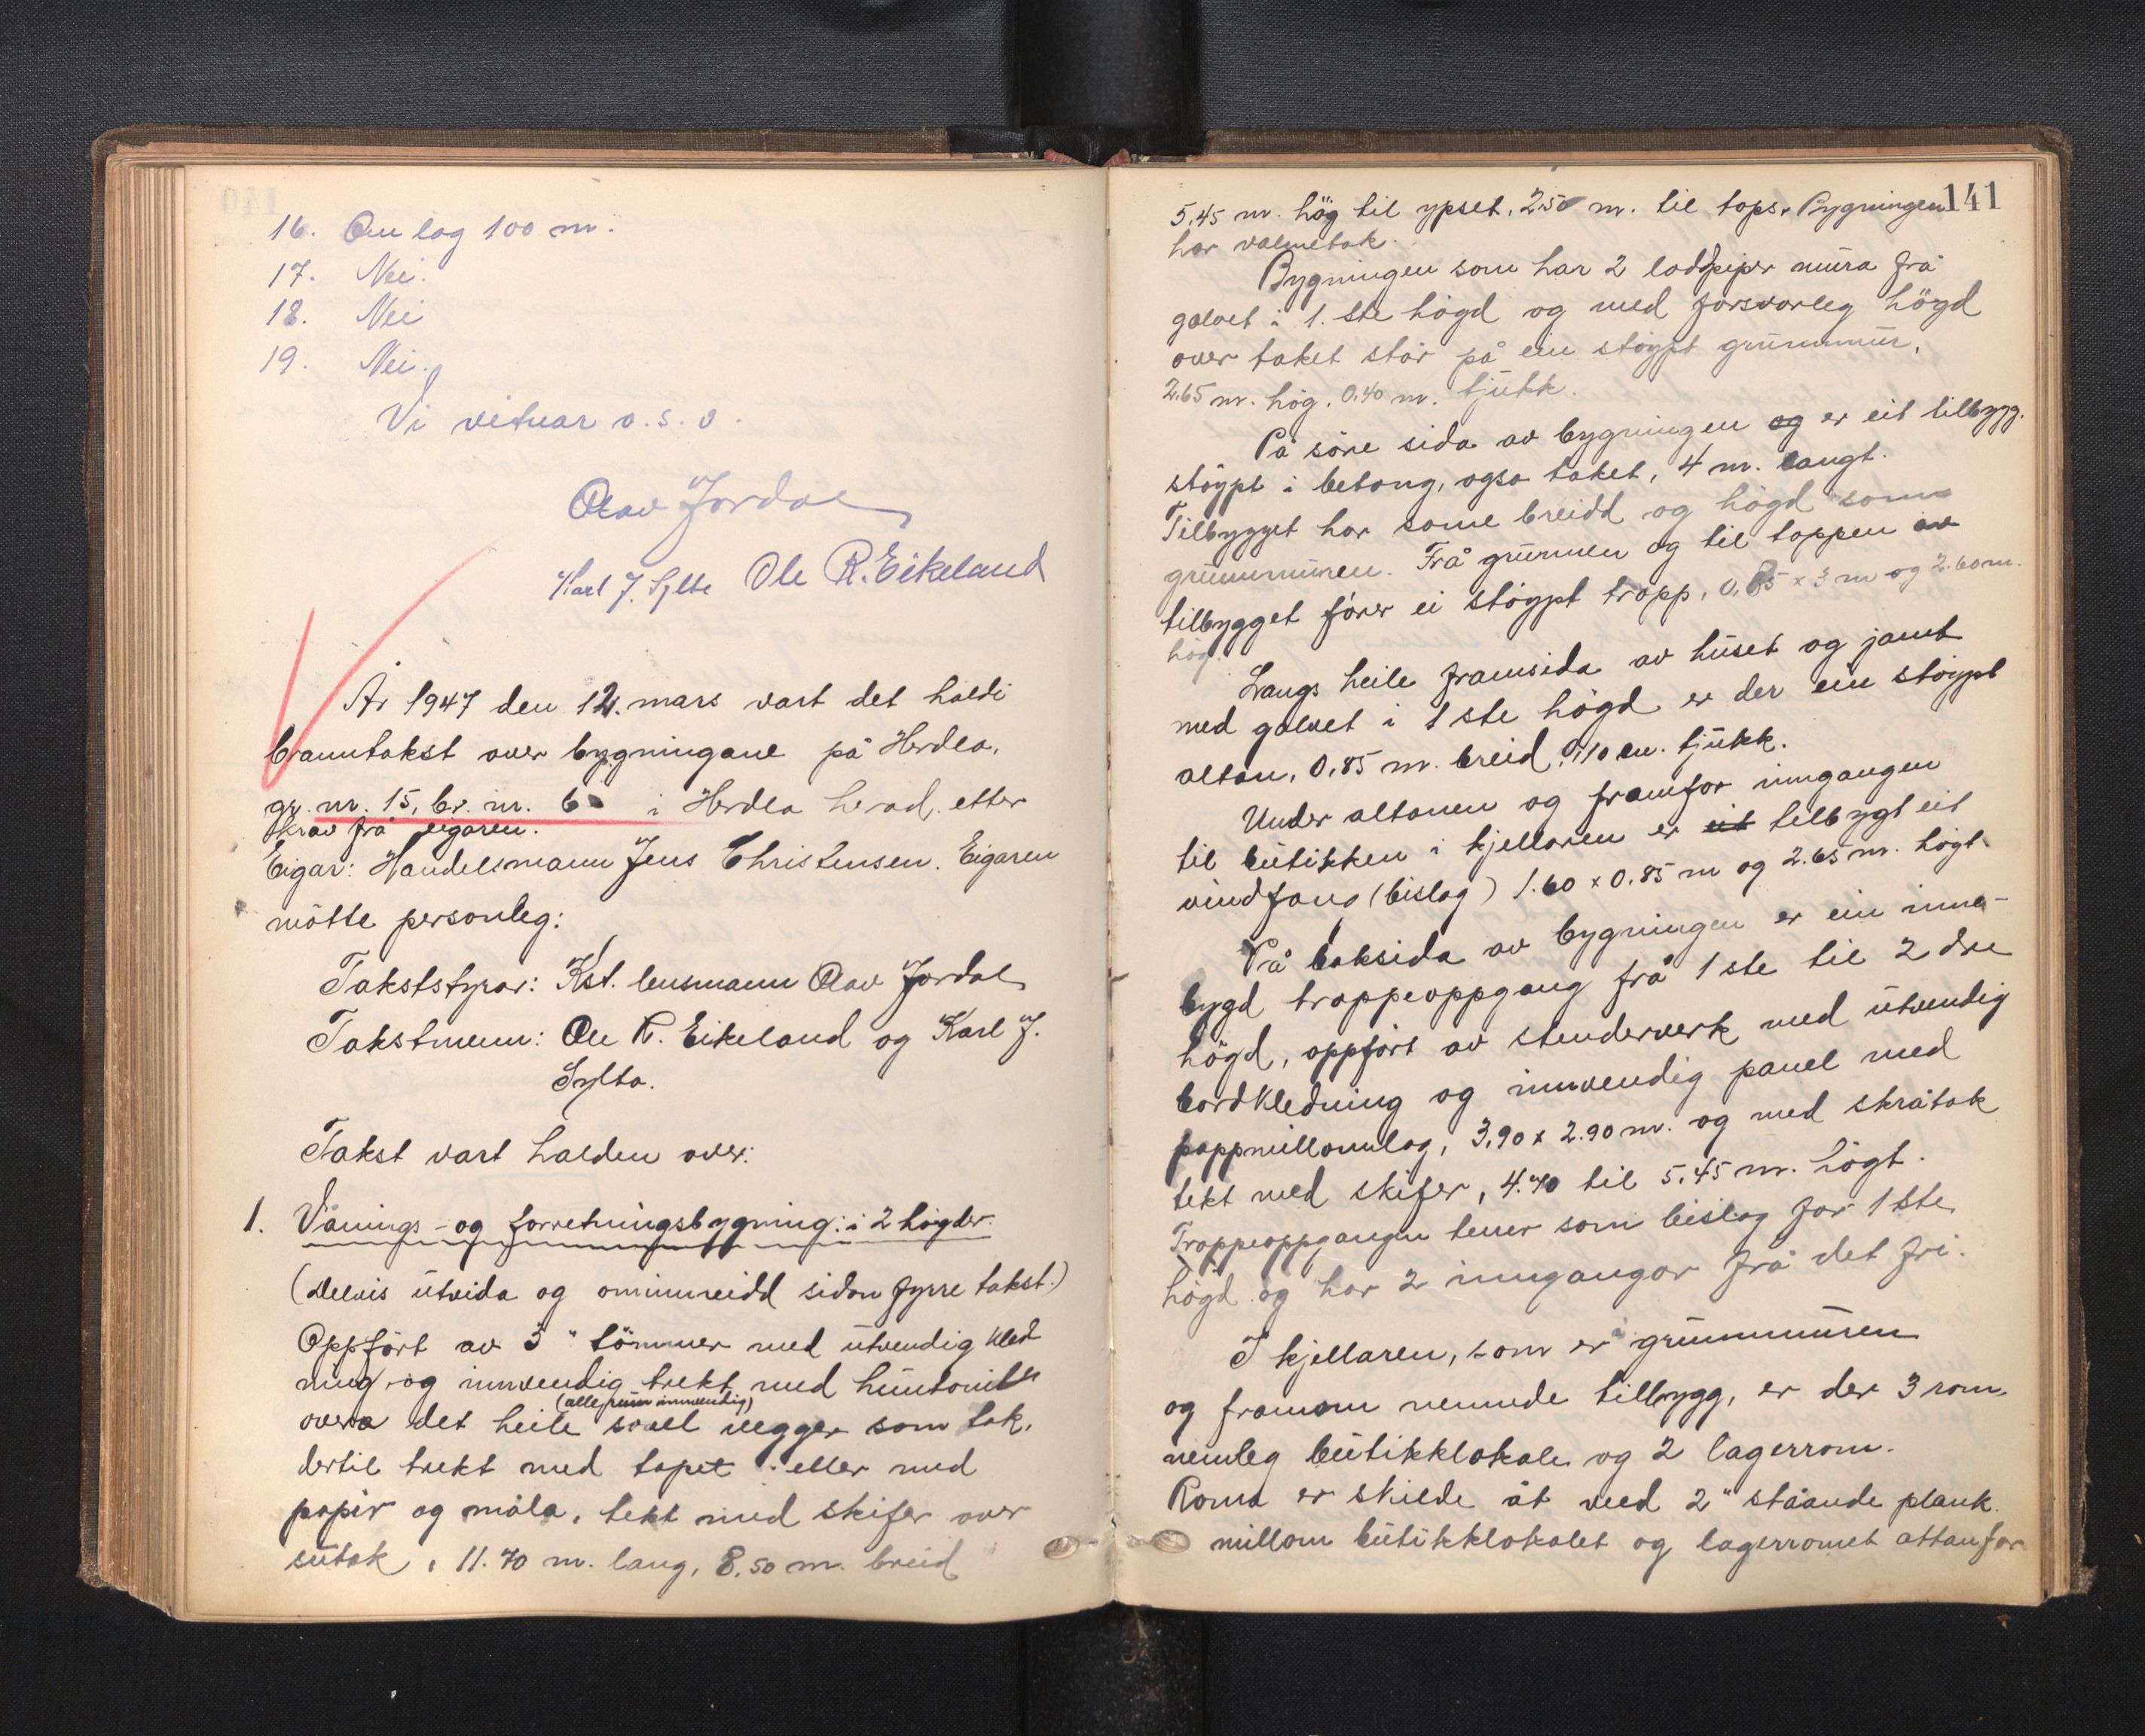 16. Om lag 100 m.
17. Nei.
18. Nei
19. Nei.
Vi vitnar o.s.v.
Olav Jordal
Karl J. Sylta Ole R. Eikeland
År 1947 den 12. mars vart det haldi
branntakst over bygningane på Herdla,
gr. nr. 15, br. nr. 6 i Herdla herad, etter
krav frå eigaren.
Eigar: Handelsmann Jens Christensen. Eigaren
møtte personleg:
Takststyrar: Kst. lensmann Olav Jordal
Takstmenn: Ole R. Eikeland og Karl J.
Sylta.
Takst vart halden over:
1. Vånings- og forretningsbygning: i 2 högder.
(delvis utvida og ominnreidd sidan fyrre takst.)
Oppfört av 3" tömmer med utvendig kled
ning og innvendig trekt med huntonitt
(alle rum innvendig)
overa det heile såvel vegger som tak,
dertil trekt med tapet eller med
papir og måla, tekt med skifer over
sutak, 11.70 m. lang, 8,50 m. breid
141
5,45 m. hög til ypset, 2,50 m. til tops. Bygningen
har valmetak.
Bygningen som har 2 lodpiper mura frå
golvet i 1. ste högd og med forsvarleg högd
over taket står på ein støypt grunnmur,
2.65 m. hög, 0,40 m. tjukk.
På söre sida av bygningen og er eit tilbygg.
støypt i betong, ogso taket, 4 m. langt.
Tilbygget har same breidd og högd som
grunnmuren. Frå grunnen og til toppen av
tilbygget förer ei støypt tropp, 0,85 x 3 m og 2.60 m.
hög.
Langs heile framsida av huset og jamt
med golvet i 1 ste högd er der ein støypt
altan, 0,85 m. breid, 10 cm. tjukk.
Under altanen og framfor inngangen
til butikken i kjellaren er eit tilbygt eit
vindfang (bislag) 1.60 x 0.85 m og 2.65 m. högt.
På baksida av bygningen er ein inne-
bygd troppeoppgang frå 1 ste til 2 dre
högd, oppfört av stenderverk med utvendig
bordkledning og innvendig panel med
pappmillomlag, 3,90 x 2.90 m. og med skråtak
tekt med skifer, 4.70 til 5,45 m. högt.
Troppeoppgangen tener som bislag for 1 ste
högd og har 2 inngangar frå det fri.
I kjellaren, som er i grunnmuren
og framom nemnde tilbygg, er der 3 rom,
nemleg butikklokale og 2 lagerrom.
Roma er skilde åt med 2" ståande plank
millom butikklokalet og lagerromet attanfor